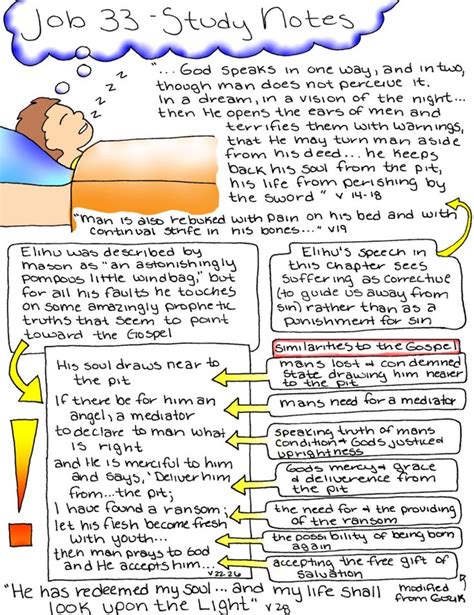 Job 33 - Study Notes
z z z
"... God speaks in one way, and in two,
though man does not perceive it.
In a dream, in a vision of the night...
then He opens the ears of men and
terrifies them with warnings,
that He may turn man aside
from his deed... he keeps
back his soul from the pit,
his life from perishing by
the sword" v 14-18
"man is also rebuked with pain on his bed and with
continual strife in his bones..." v19
Elihu was described by
mason as "an astonishingly
pompous little windbag," but
for all his faults he touches
on some amazingly prophetic
truths that seem to point
toward the Gospel
Elihu's speech in
this chapter sees
suffering as corrective
(to guide us away from
sin) rather than as a
punishment for sin
Similarities to the Gospel
His soul draws near to
the pit
If there be for him an
angel, a mediator
to declare to man what
is right
and He is merciful to him
and says, 'Deliver him
from...the pit;
I have found a ransom;
let his flesh become fresh
with youth...
then man prays to God
and He accepts him...
v22-26
mans lost & condemned
state drawing him nearer
to the pit
mans need for a mediator
speaking truth of mans
condition & Gods justice &
uprightness
Gods mercy & grace
& deliverance from
the pit
the need for & the providing
of the ransom
the possibility of being born
again
accepting the free gift of
salvation
"He has redeemed my soul... and my life shall
look upon the Light" v 28
modified
from